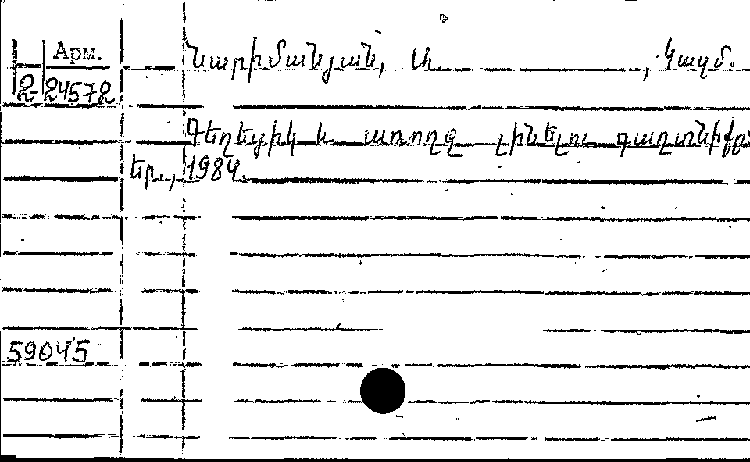 Арм.
2-24572
Նարիմանյան, Ա. , կազմ.
Գեղեցիկ և առողջ լինելու գաղտնիքը:
Եր., 1984.
59045